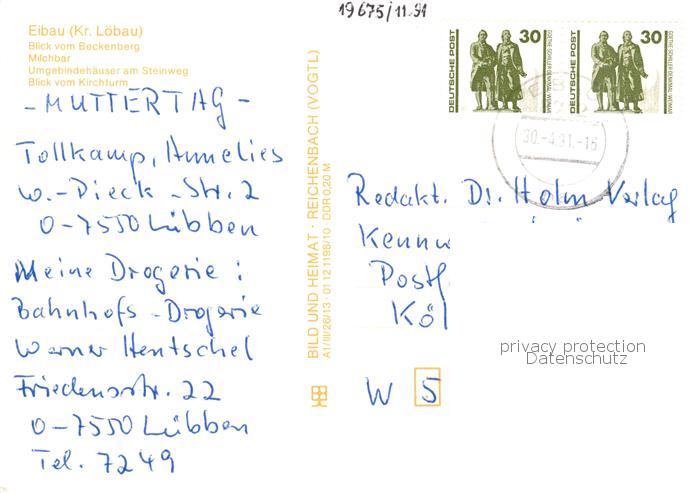 19675/11.91
Eibau (Kr. Löbau)
Blick vom Beckenberg
Milchbar
Umgebindehäuser am Steinweg
Blick vom Kirchturm
- MUTTERTAG -
Tollkamp, Annelies
W.-Pieck-Str. 2
O-7550 Lübben
Meine Drogerie :
Bahnhofs-Drogerie
Werner Hentschel
Friedensstr. 22
O-7550 Lübben
Tel. 7249
BILD UND HEIMAT · REICHENBACH (VOGTL)
A1/III/26/13 · 01 12 1198/10 · DDR 0,20 M
DEUTSCHE POST 30 GOETHE-SCHILLER-DENKMAL, WEIMAR
DEUTSCHE POST 30 GOETHE-SCHILLER-DENKMAL, WEIMAR
30.-4.91.-16
Redakt. Dr. Holm Verlag
Kennw
Postf
Köl
W 5
privacy protection
Datenschutz